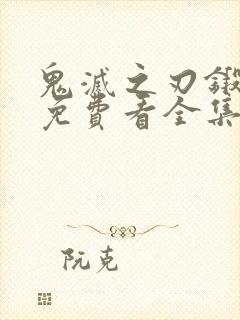 鬼滅之刃鍛
免費看全集
阮克